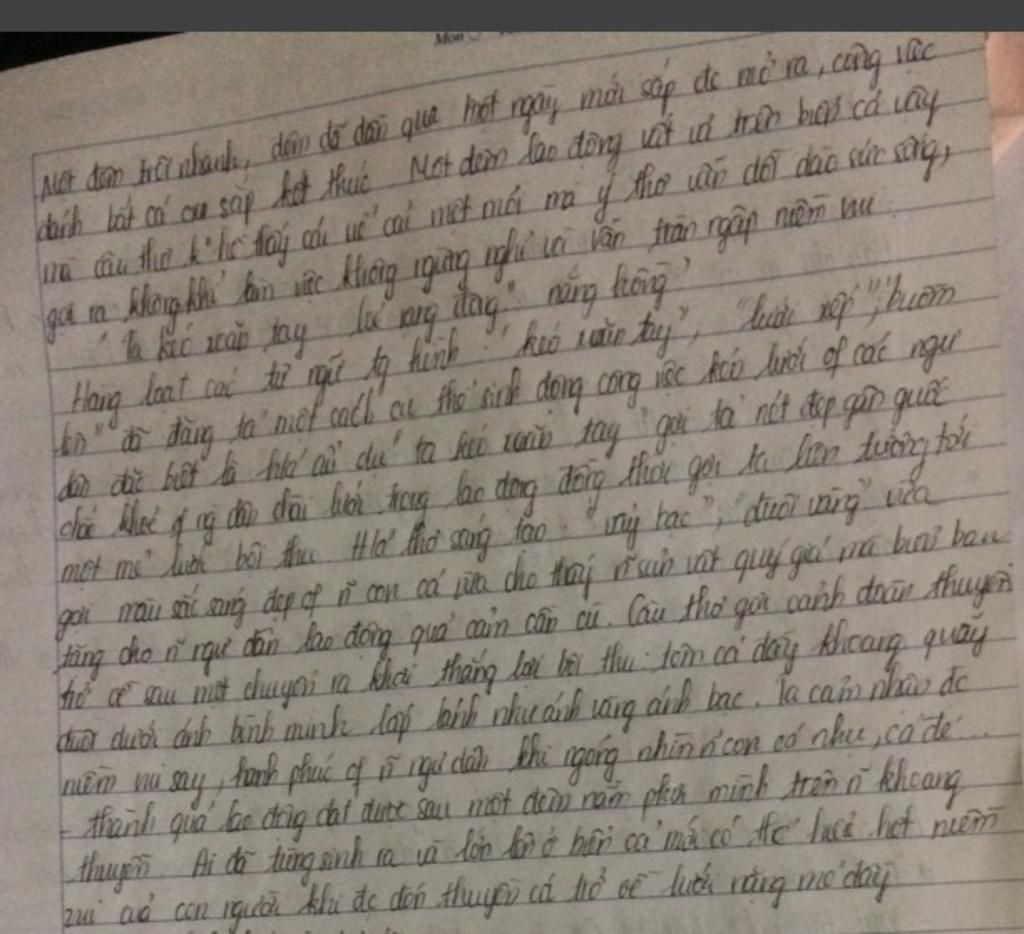 Môn
Một đêm trôi nhanh, đêm đã dần qua một ngày mới sắp đc mở ra, công việc
đánh bắt cá sắp kết thúc. Một đêm lao động vất vả trên biển cả vậy
mà câu thơ k hề thấy cái vẻ cái mệt mỏi mà ý thơ vẫn dồi dào sức sống,
gợi ra không khí làm việc không ngừng nghỉ và vẫn tràn ngập niềm vui
"Ta kéo xoăn tay lưới nắng hồng"
Hàng loạt các từ ngữ tạ hình: "kéo xoăn tay", "lưới xếp", "buồm
đã đặng tả một cách cụ thể sinh động công việc kéo lưới of các ngư
dân đặc biệt là "ta kéo xoăn tay" gợi tả nét đẹp gân guốc
chắc khoẻ of ng dân chài lưới trong lao động đồng thời gợi ta liên tưởng tới
một mẻ lưới bội thu. H/ả thơ sáng tạo: "vảy bạc", "đuôi vàng" vừa
gợi màu sắc sáng đẹp of n~ con cá vừa cho thấy n~ sản vật quý giá mà biển ban
tặng cho n~ ngư dân lao động quả cảm cần cù. Câu thơ gợi cảnh đoàn thuyền
trở về sau một chuyến ra khơi thắng lợi bội thu: tôm cá đầy khoang quẫy
đuôi dưới ánh bình minh lấp lánh như ánh vàng ánh bạc. Ta cảm nhận đc
niềm vui say, hạnh phúc of n~ ngư dân khi ngóng nhìn n~ con cá nhụ, cá đé...
- thành quả lao động đạt được sau một đêm nằm phơi mình trên n~ khoang
thuyền. Ai đã từng sinh ra và lớn lên ở biển cả mới có thể hiểu hết niềm
vui của con người khi đc đón thuyền cá trở về lưới nặng mẻ đầy